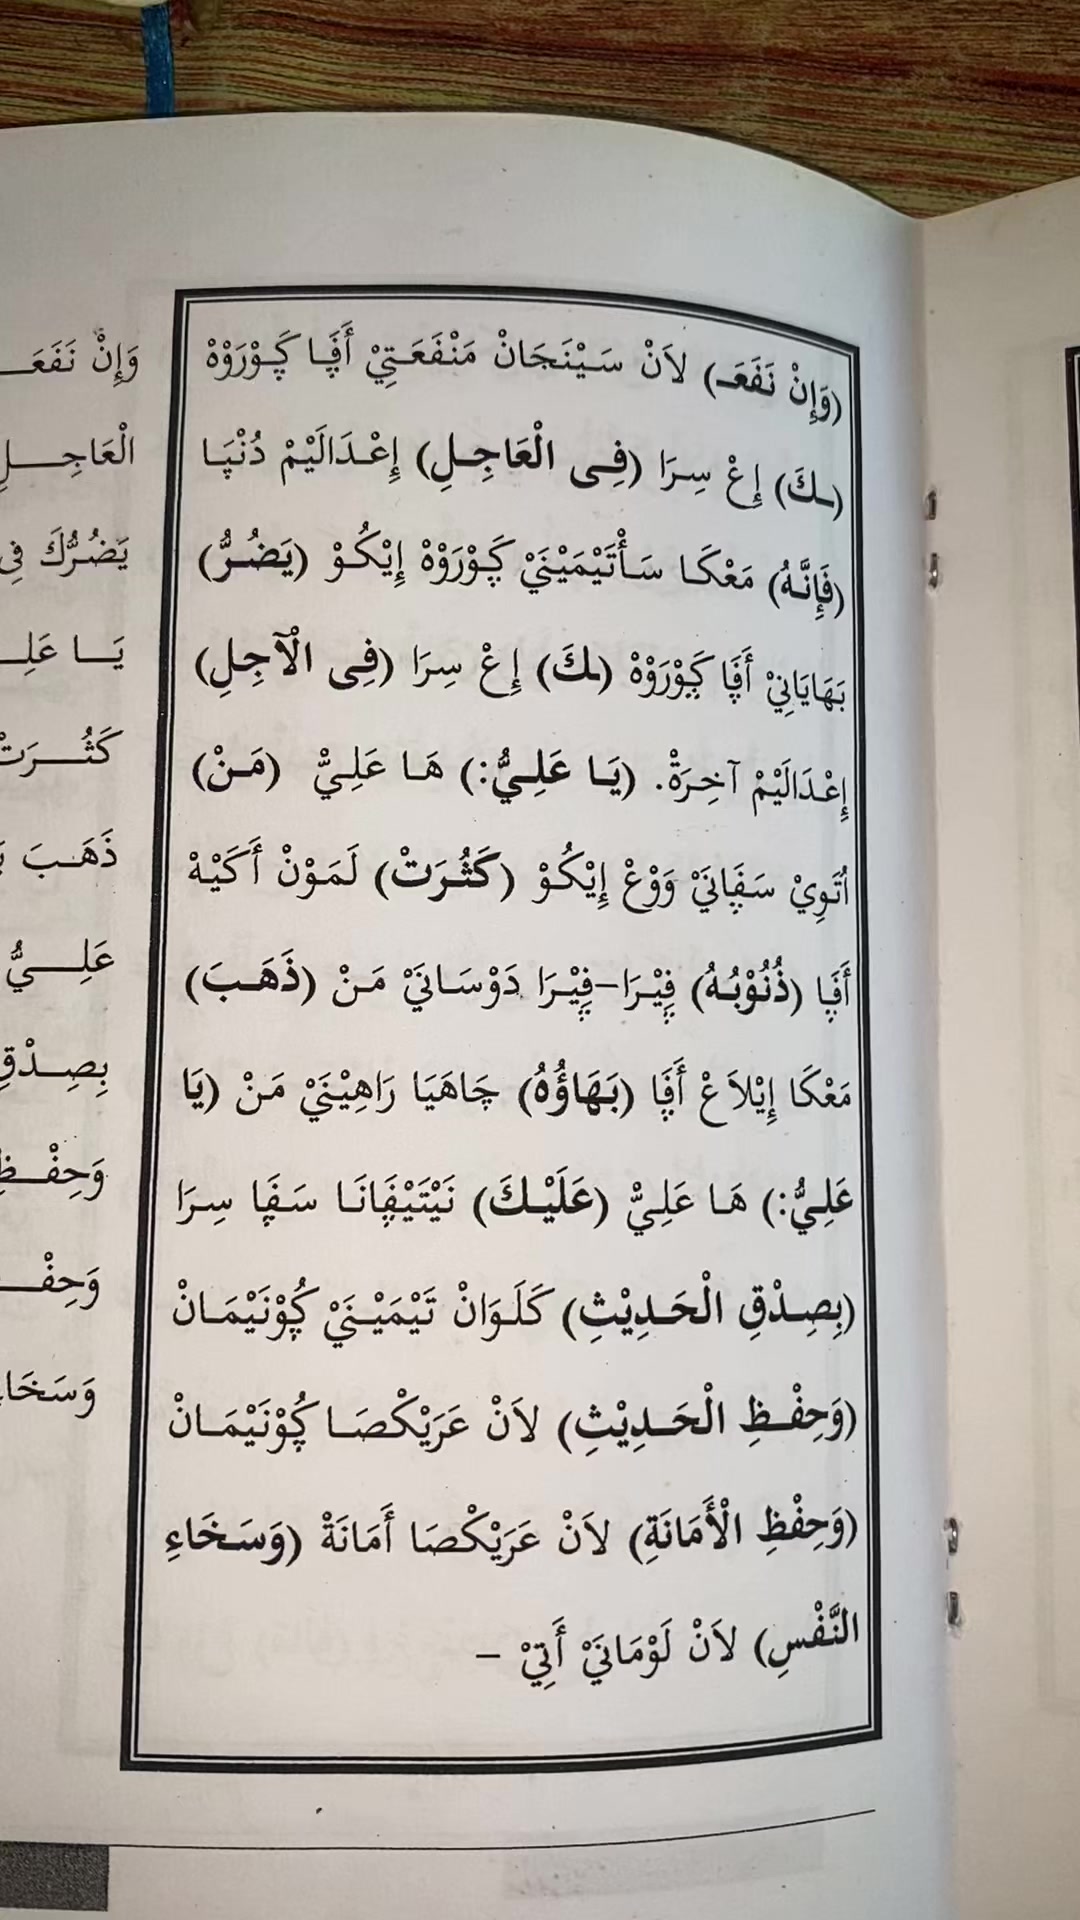 (وَإِنْ نَفَعَـ) لاَنْ سَيْنَجَانْ مَنْفَعَتِيْ أَڤَا ڮَوْرَوْهْ
(ـكَ) إِڠْ سِرَا (فِى الْعَاجِلِ) إِڠْدَالَيْمْ دُنْيَا
(فَإِنَّهُ) مَڠْكَا سَأْتَيْمَيْنَيْ ڮَوْرَوْهْ إِيْكُوْ (يَضُرُّ)
بَهَايَانِيْ أَڤَا ڮَوْرَوْهْ (ـكَ) إِڠْ سِرَا (فِى الْآجِلِ)
إِڠْدَالَيْمْ آخِرَةْ. (يَا عَلِيُّ:) هَا عَلِيُّ (مَنْ)
اُتَوِيْ سَڤَانَيْ وَوْڠْ إِيْكُوْ (كَثُرَتْ) لَمَوْنْ أَكَيْهْ
أَڤَا (ذُنُوْبُهُ) ڤِيْرَا-ڤِيْرَا دَوْسَانَيْ مَنْ (ذَهَبَ)
مَڠْكَا إِيْلاَڠْ أَڤَا (بَهَاؤُهُ) چَاهَيَا رَاهِيْنَيْ مَنْ (يَا
عَلِيُّ:) هَا عَلِيُّ (عَلَيْكَ) نَيْتَيْڤَانَا سَڤَا سِرَا
(بِصِدْقِ الْحَدِيْثِ) كَلَوَانْ تَيْمَيْنَيْ ڮُوْنَيْمَانْ
(وَحِفْظِ الْحَدِيْثِ) لاَنْ ڠَرَيْكْصَا ڮُوْنَيْمَانْ
(وَحِفْظِ الْأَمَانَةِ) لاَنْ ڠَرَيْكْصَا أَمَانَةْ (وَسَخَاءِ
النَّفْسِ) لاَنْ لَوْمَانَيْ أَتِيْ –
وَإِنْ نَفَعَـ
الْعَاجِلِ
يَضُرُّكَ فِى
يَا عَلِـ
كَثُرَتْ
ذَهَبَ
عَلِيُّ
بِصِدْقِ
وَحِفْظِ
وَحِفْـ
وَسَخَا